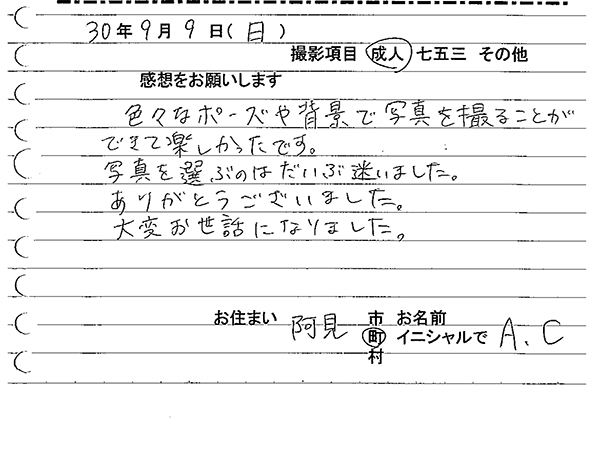 30年9月9日(日)
撮影項目 成人 七五三 その他
感想をお願いします
色々なポーズや背景で写真を撮ることが
できて楽しかったです。
写真を選ぶのはだいぶ迷いました。
ありがとうございました。
大変お世話になりました。
お住まい 阿見 市 町 村 お名前 イニシャルで A.C